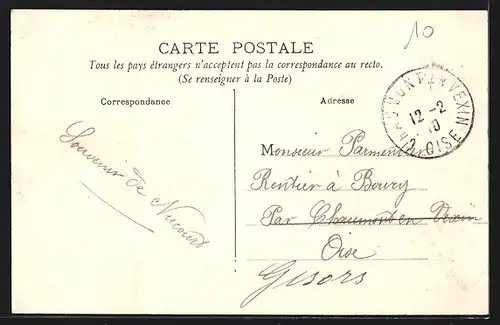 10
CARTE POSTALE
Tous les pays étrangers n'acceptent pas la correspondance au recto.
(Se renseigner à la Poste)
Correspondance
Adresse
CHAUMONT EN VEXIN
12-2
10
OISE
Souvenir de Nucourt
Monsieur Parmentier
Rentier à Boury
Par Chaumont en Vexin
Oise
Gisors